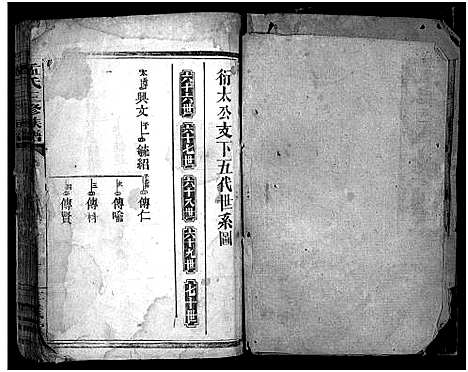 衍太公支下五代世系圖
六十六世 六十七世 六十八世 六十九世 七十世
興文 毓紹 傳仁
傳喻
傳村
傳賢
孟氏三修族譜